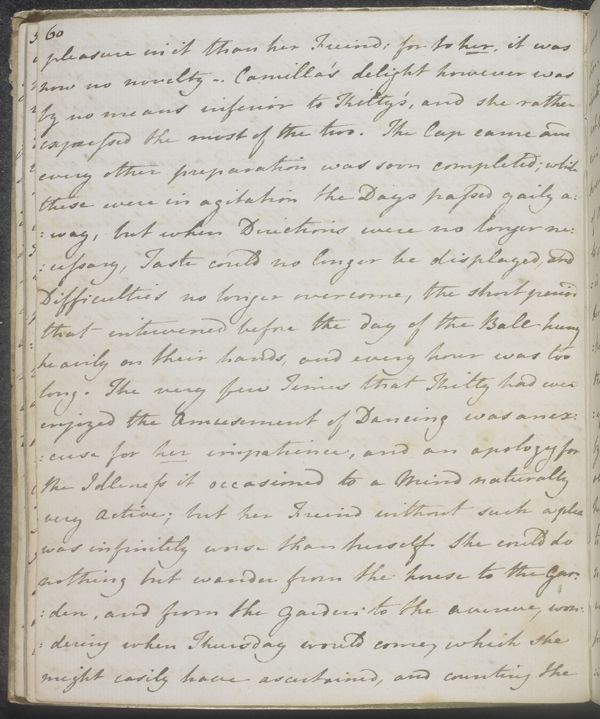 60
pleasure in it than her Freind; for to her, it was
now no novelty -. Camilla's delight however was
by no means inferior to Kitty's, and she rather
expressed the most of the two. The Cap came and
every other preparation was soon completed; while
these were in agitation the Days passed gaily a:
:way, but when Directions were no longer ne:
:cessary, Taste could no longer be displayed, and
Difficulties no longer overcome, the short period
that intervened before the day of the Ball hung
heavily on their hands, and every hour was too
long. The very few Times that Kitty had ever
enjoyed the Amusement of Dancing was an ex:
:cuse for her impatience, and an apology for
the Idleness it occasioned to a Mind naturally
very Active; but her Freind without such a plea
was infinitely worse than herself. She could do
nothing but wander from the house to the Gar:
:den, and from the garden to the avenue, won:
:dering when Thursday would come, which she
might easily have ascertained, and counting the